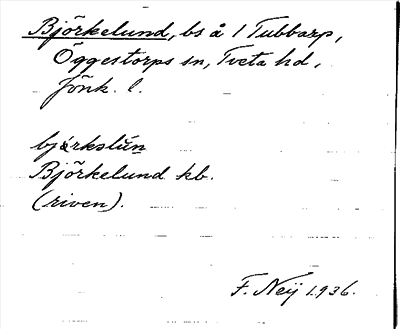 Björkelund, bs å 1 Tubbarp,
Öggestorps sn, Tveta hd,
Jönk. l.
björkslún
Björkelund kb.
(riven).
F. Neij 1936.